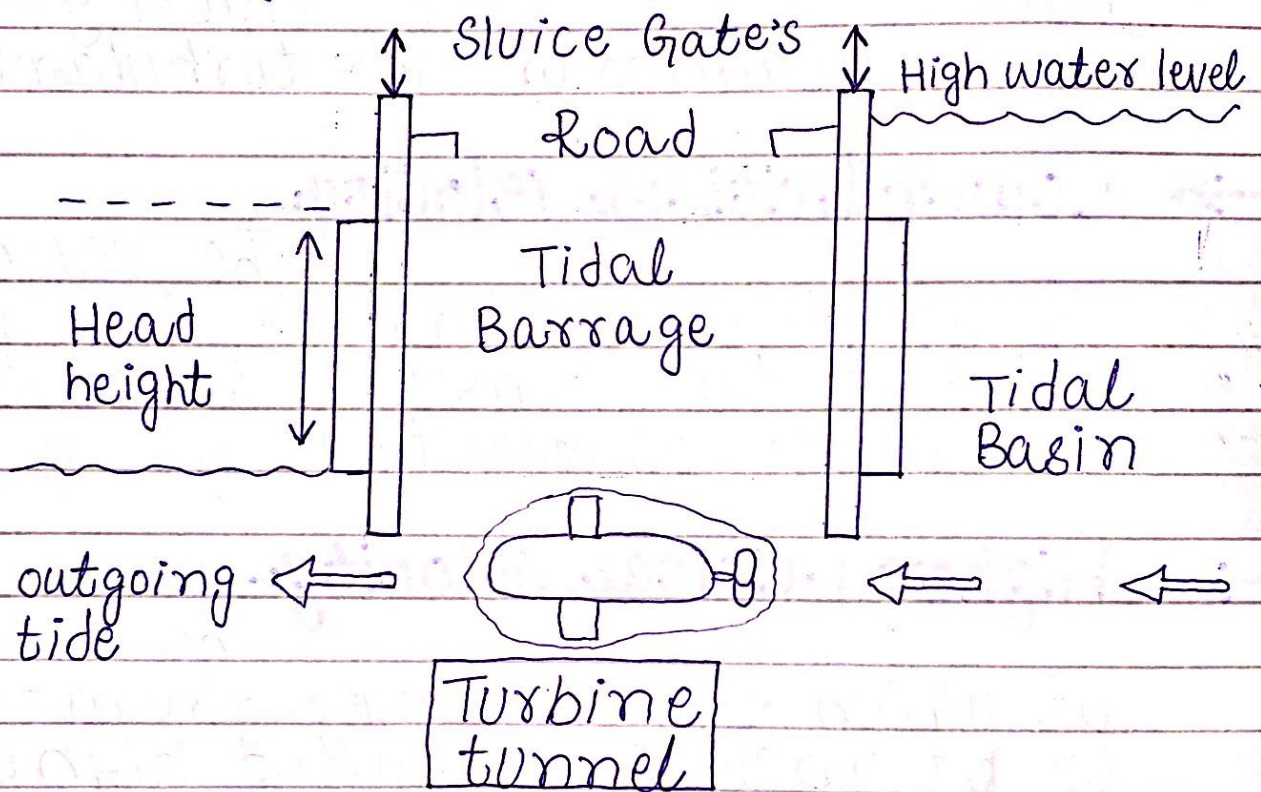 Sluice Gate's
High water level
Road
Tidal
Barrage
Head
height
Tidal
Basin
outgoing
tide
Turbine
tunnel